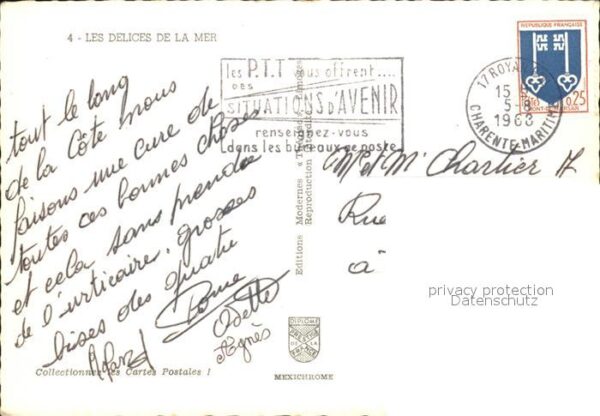 4 - LES DELICES DE LA MER
tout le long
de la Côte nous
faisons une cure de
toutes ces bonnes choses
et cela sans prendre
de l'urticaire. grosses
bises des quatre
Odette
Agnès
Collectionnez les Cartes Postales !
les P.T.T vous offrent....
DES
SITUATIONS D'AVENIR
renseignez-vous
dans les bureaux de poste
17 ROYAN
15
5-8
CHARENTE-MARITIME
REPUBLIQUE FRANÇAISE
0,25
MONT-DE-MARSAN
Editions Modernes
Reproduction
M et Me Chartier A
Rue
à
privacy protection
Datenschutz
DIPLOME
PRESTIGE
DE LA
FRANCE
MEXICHROME